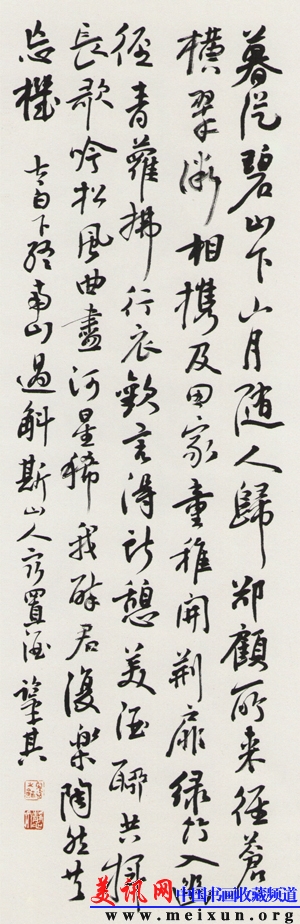 暮從碧山下山月隨人歸却顧所來徑蒼蒼
橫翠微相攜及田家童稚開荊扉綠竹入幽
徑青蘿拂行衣歡言得所憩美酒聊共揮
長歌吟松風曲盡河星稀我醉君復樂陶然共
忘機 太白下終南山過斛斯山人宿置酒 其
美讯网 中国书画收藏频道
www.meixun.org